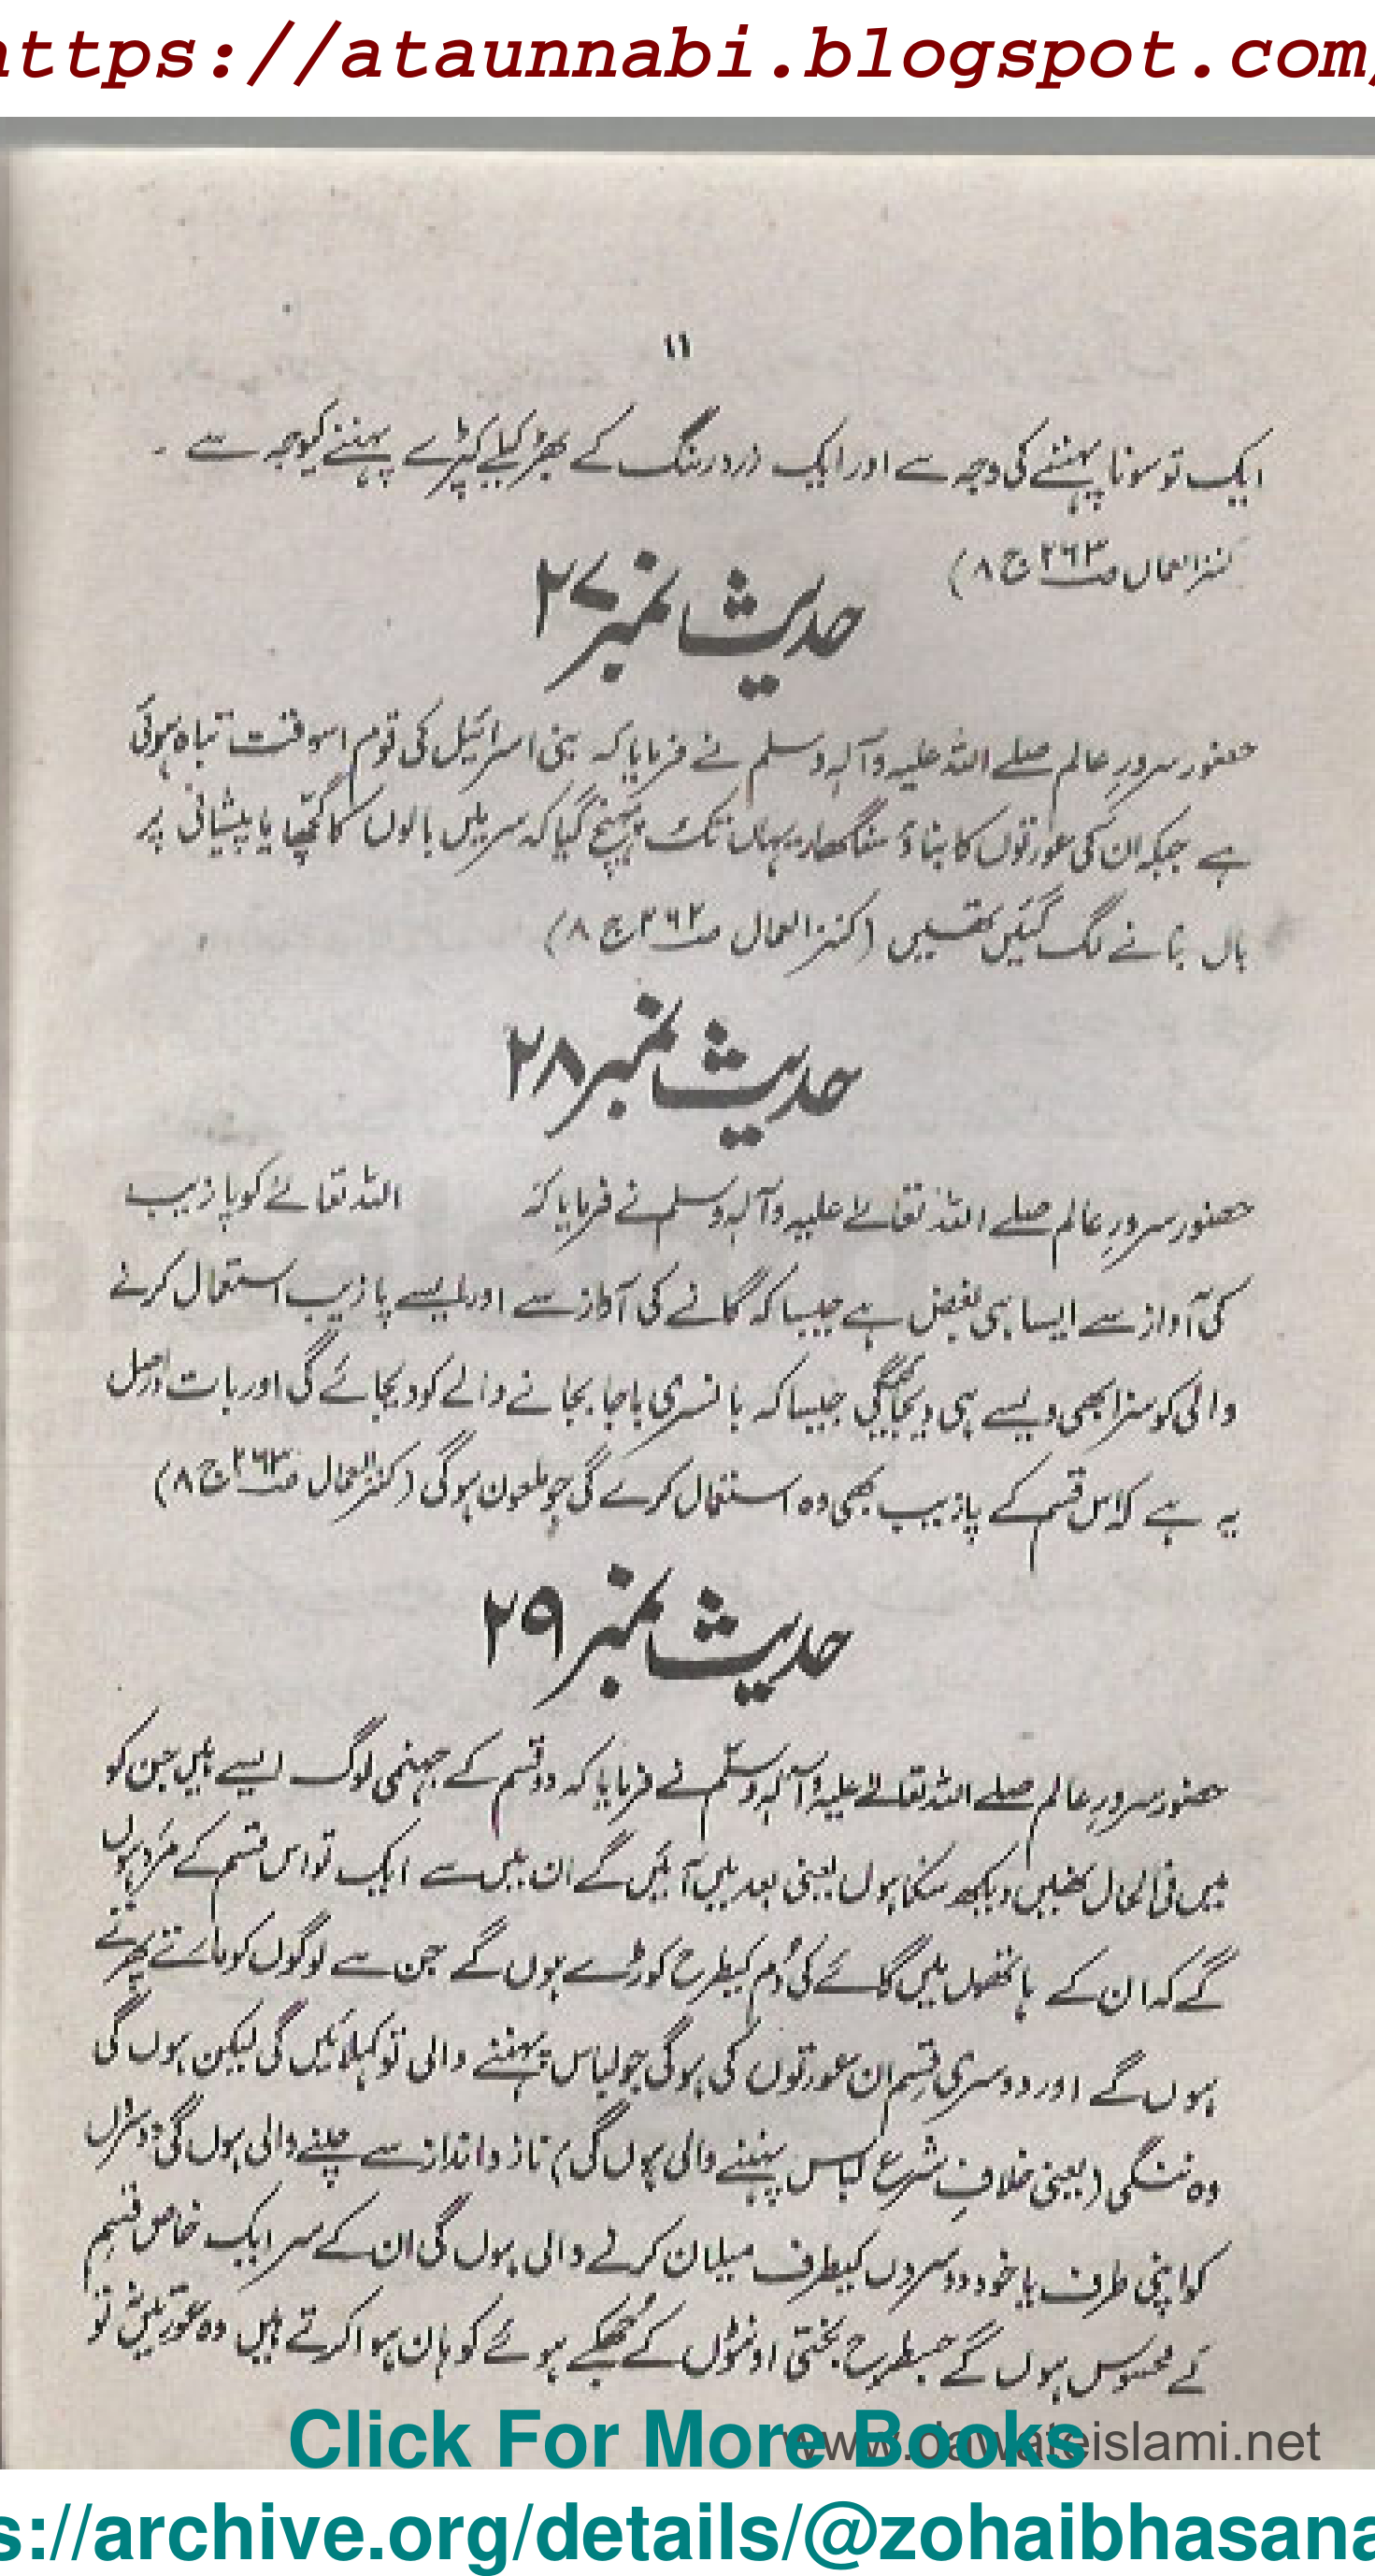 https://ataunnabi.blogspot.com/
۱۱
ایک تو سونا پہننے کی وجہ سے اور ایک زرد رنگ کے بھڑکیلے کپڑے پہننے کیوجہ سے ۔
کنز العمال صـ۲۶۳ ج ۸)
حدیث نمبر ۲۷
حضور سرورِ عالم صلے اللہ علیہ وآلہ وسلم نے فرمایا کہ بنی اسرائیل کی قوم اسوقت تباہ ہوئی
ہے جبکہ ان کی عورتوں کا بناؤ سنگھار یہاں تک پہنچ گیا کہ سر میں بالوں کا گچھا یا پیشانی پر
بال بنانے لگ گئیں تھیں (کنز العمال صـ۲۶۲ ج ۸)
حدیث نمبر ۲۸
حضور سرورِ عالم صلے اللہ تعالےٰ علیہ وآلہ وسلم نے فرمایا کہ اللہ تعالےٰ کو پازیب
کی آواز سے ایسا ہی بغض ہے جیسا کہ گانے کی آواز سے اور ایسے پازیب استعمال کرنے
والی کو سزا بھی ویسے ہی دیجائیگی جیسا کہ بانسری باجا بجانے والے کو دیجائے گی اور بات دراصل
یہ ہے کہ اس قسم کے پازیب بھی وہ استعمال کرے گی جو ملعون ہوگی (کنز العمال صـ۲۶۳ ج ۸)
حدیث نمبر ۲۹
حضور سرورِ عالم صلے اللہ تعالےٰ علیہ وآلہ وسلّم نے فرمایا کہ دو قسم کے جہنمی لوگ ایسے ہیں جن کو
میں فی الحال نہیں دیکھ سکتا ہوں یعنی بعد میں آئیں گے ان میں سے ایک تو اس قسم کے مرد ہوں
گے کہ ان کے ہاتھوں میں گائے کی دُم کیطرح کوڑے ہوں گے جن سے لوگوں کو مارتے پھرتے
ہوں گے اور دوسری قسم ان عورتوں کی ہوگی جو لباس پہننے والی تو کہلائیں گی لیکن ہوں گی
وہ ننگی (یعنی خلافِ شرع لباس پہننے والی ہوں گی) ناز و انداز سے چلنے والی ہوں گی، دوسروں
کو اپنی طرف یا خود دوسروں کیطرف میلان کرنے والی ہوں گی ان کے سر ایک خاص قسم
کے محسوس ہوں گے جسطرح بختی اونٹوں کے جُھکے ہوئے کوہان ہوا کرتے ہیں وہ عورتیں تو
Click For More Books
www.dawateislami.net
s://archive.org/details/@zohaibhasana